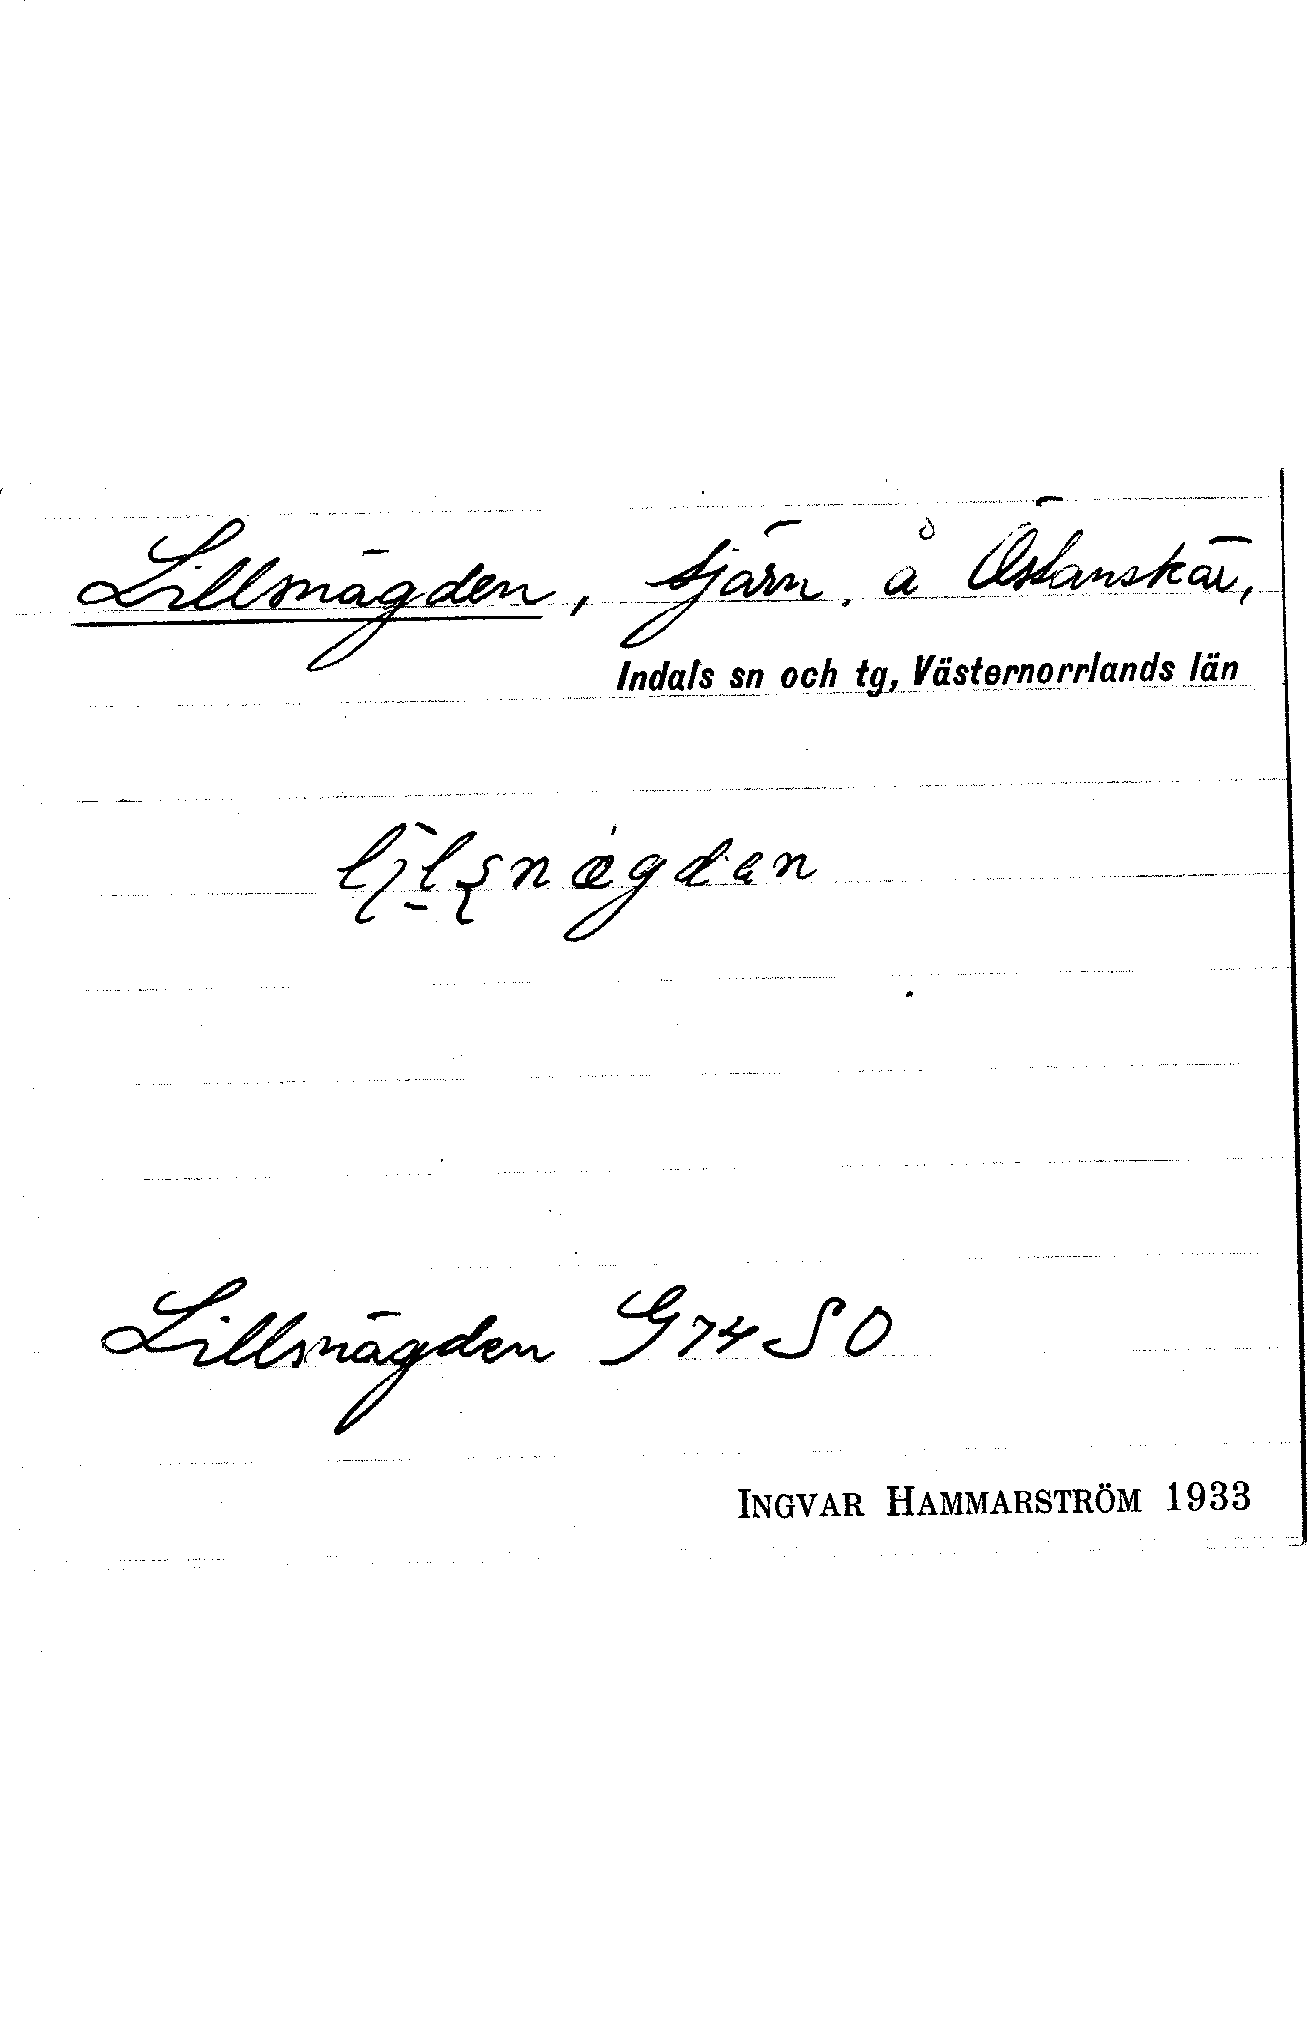 Lillsnägden, tjärn, å Östanskär,
Indals sn och tg, Västernorrlands län
Lillsnägden G74SO
INGVAR HAMMARSTRÖM 1933